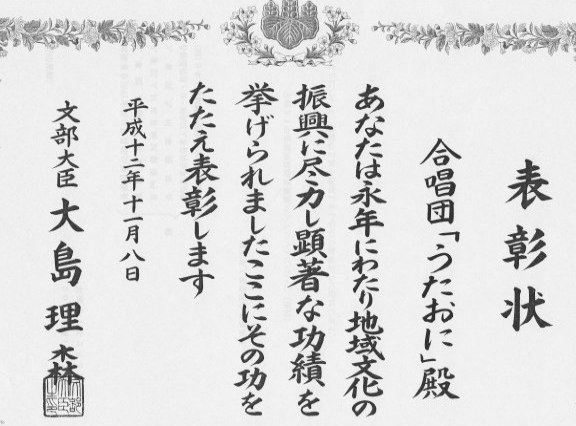 表彰状
合唱団「うたおに」殿
あなたは永年にわたり地域文化の
振興に尽力し顕著な功績を
挙げられましたここにその功を
たたえ表彰します
平成十二年十一月八日
文部大臣 大島理森